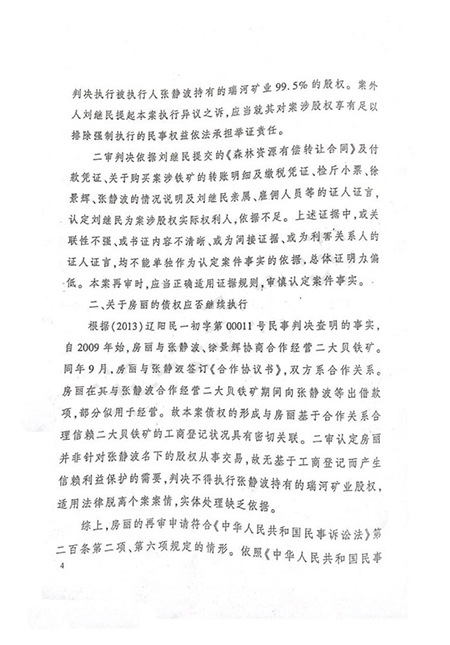 判决执行被执行人张静波持有的瑞河矿业99.5%的股权。案外
人刘继民提起本案执行异议之诉,应当就其对案涉股权享有足以
排除强制执行的民事权益依法承担举证责任。
二审判决依据刘继民提交的《森林资源有偿转让合同》及付
款凭证、关于购买案涉铁矿的转账明细及缴税凭证、检斤小票、徐
景辉、张静波的情况说明及刘继民亲属、雇佣人员等的证人证言,
认定刘继民为案涉股权实际权利人,依据不足。上述证据中,或关
联性不强、或书证内容不清晰、或为间接证据、或为利害关系人的
证人证言,均不能单独作为认定案件事实的依据,总体证明力偏
低。本案再审时,应当正确适用证据规则,审慎认定案件事实。
二、关于房丽的债权应否继续执行
根据(2013)辽阳民一初字第00011号民事判决查明的事实,
自2009年始,房丽与张静波、徐景辉协商合作经营二大贝铁矿。
同年9月,房丽与张静波签订《合作协议书》,双方系合作关系。
房丽在其与张静波合作经营二大贝铁矿期间向张静波等出借款
项,部分似用于经营。故本案债权的形成与房丽基于合作关系合
理信赖二大贝铁矿的工商登记状况具有密切关联。二审认定房丽
并非针对张静波名下的股权从事交易,故无基于工商登记而产生
信赖利益保护的需要,判决不得执行张静波持有的瑞河矿业股权,
适用法律脱离个案案情,实体处理缺乏依据。
综上,房丽的再审申请符合《中华人民共和国民事诉讼法》第
二百条第二项、第六项规定的情形。依照《中华人民共和国民事
4